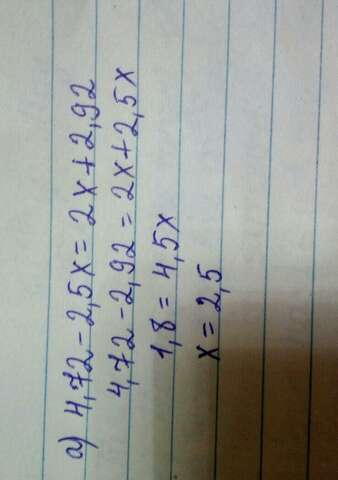 а) 4,72-2,5x=2x+2,92
4,72-2,92=2x+2,5x
1,8=4,5x
x=2,5